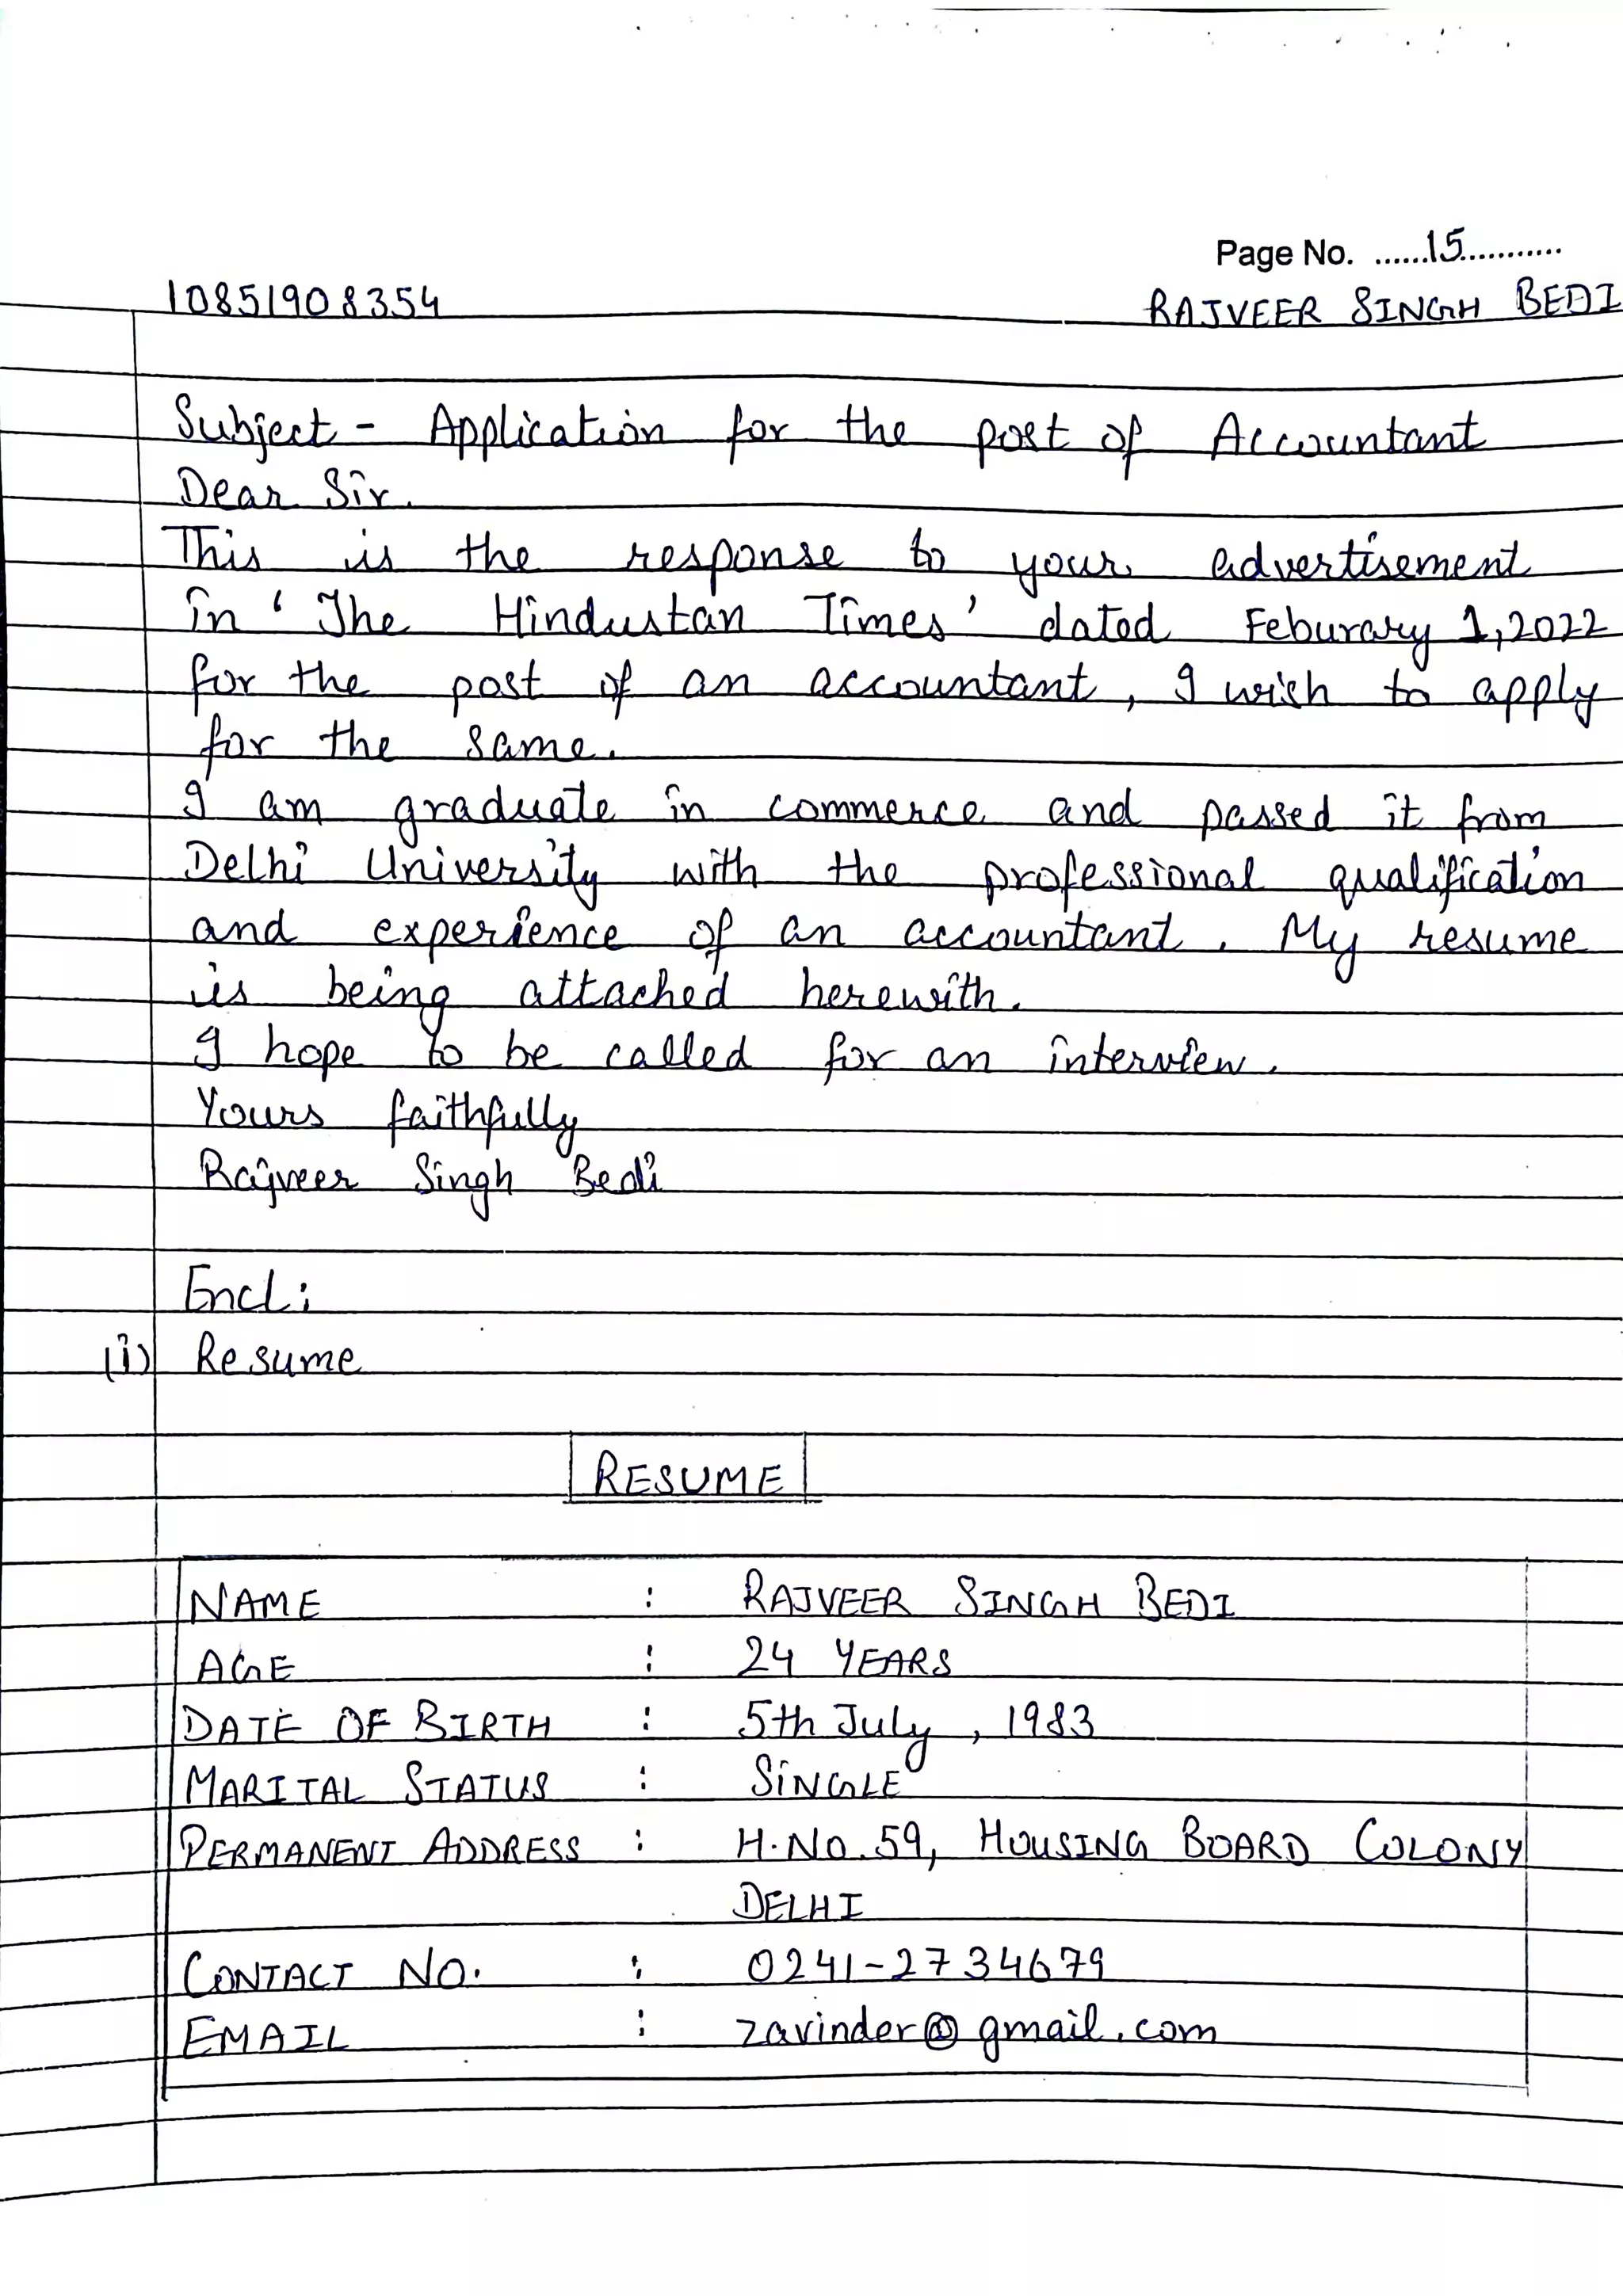 Page No. ......15...........
10851908354 RAJVEER SINGH BEDI
Subject - Application for the post of Accountant
Dear Sir.
This is the response to your advertisement
in ' The Hindustan Times' dated Feburary 1,2022
for the post of an accountant, I wish to apply
for the same.
I am graduate in commerce and passed it from
Delhi University with the professional qualification
and experience of an accountant. My resume
is being attached herewith.
I hope to be called for an interview.
Yours faithfully
Rajveer Singh Bedi
Encl:
(i) Resume
RESUME
NAME : RAJVEER SINGH BEDI
AGE : 24 YEARS
DATE OF BIRTH : 5th July, 1983
MARITAL STATUS : SiNGLE
PERMANENT ADDRESS : H.No.59, HOUSING BOARD COLONY
DELHI
CONTACT NO. : 0241-2734679
EMAIL : zavinder@gmail.com